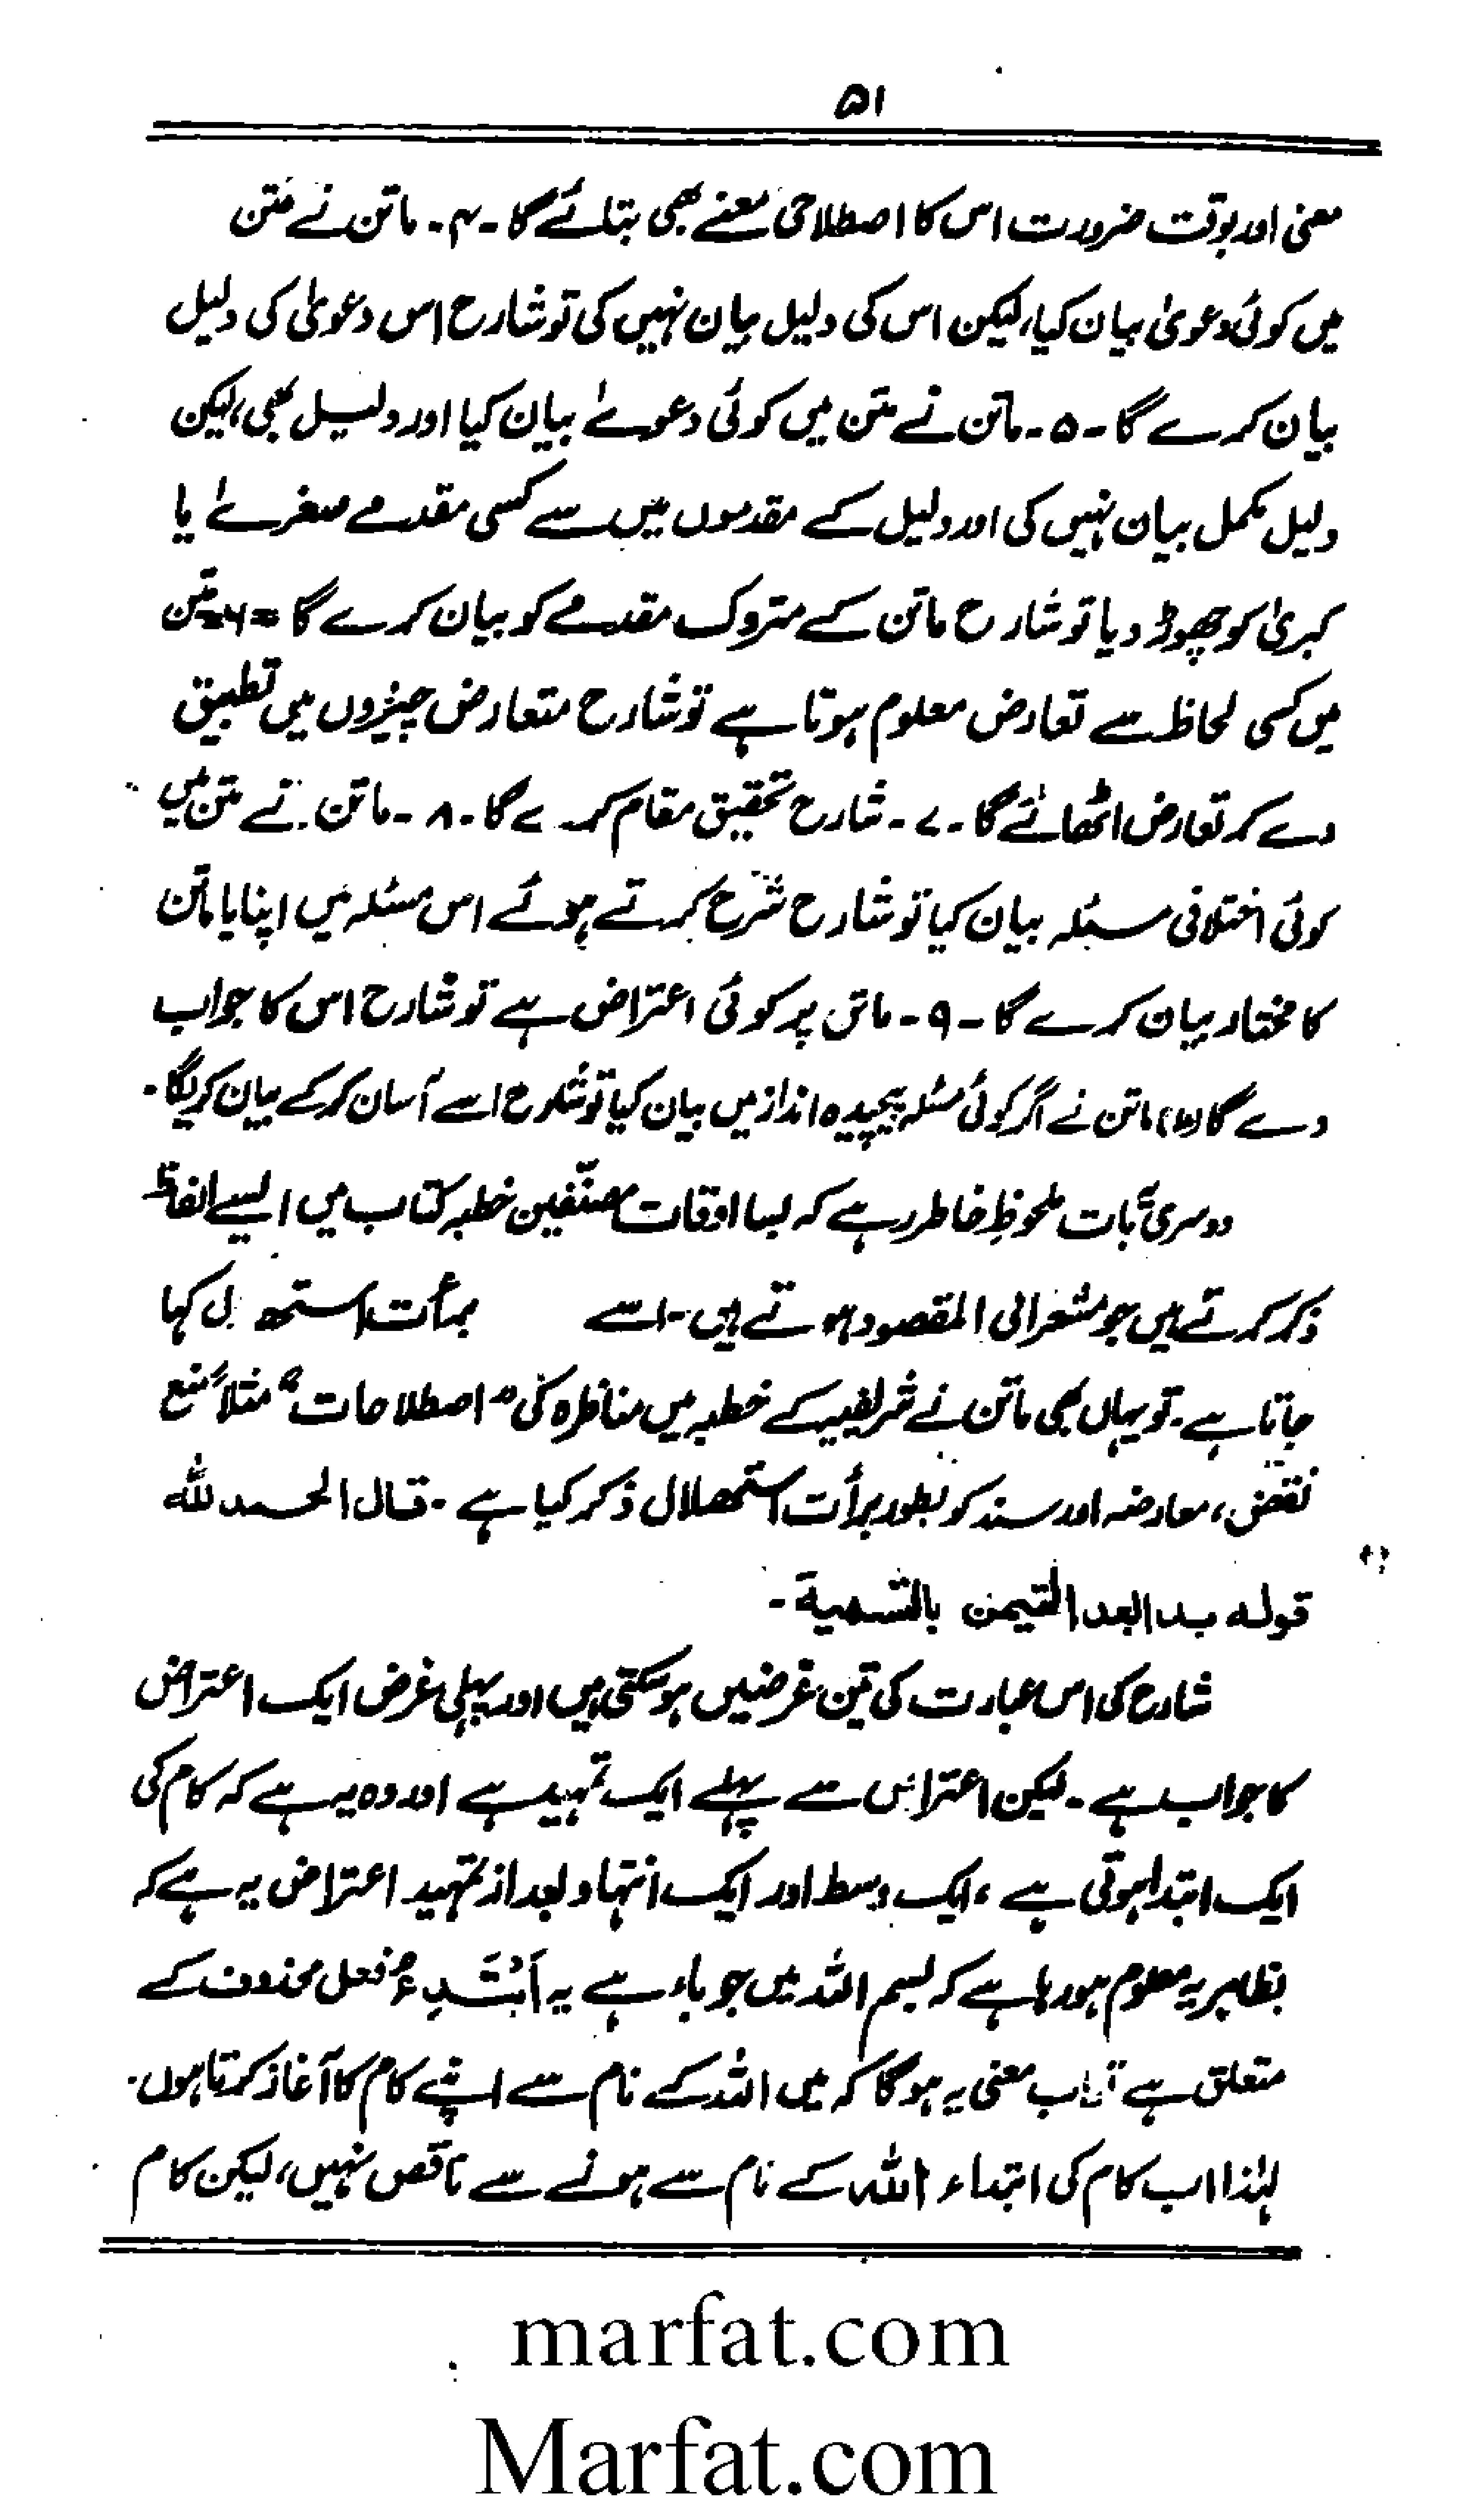 ۵۱
معنی اور بوقت ضرورت اس کا اصطلاحی معنے بھی بتلائے گا۔ ۴۔ ماتن نے متن
میں کوئی دعویٰ بیان کیا، لیکن اس کی دلیل بیان نہیں کی تو شارح اس دعویٰ کی دلیل
بیان کرے گا۔ ۵۔ ماتن نے متن میں کوئی دعوےٰ بیان کیا اور دلیل بھی، لیکن
دلیل مکمل بیان نہیں کی اور دلیل کے مقدموں میں سے کسی مقدمے صغرےٰ یا
کبریٰ کو چھوڑ دیا تو شارح ماتن کے متروک مقدمے کو بیان کرے گا۔ ۶۔ متن
میں کسی لحاظ سے تعارض معلوم ہوتا ہے تو شارح متعارض چیزوں میں تطبیق
دے کر تعارض اٹھائے گا۔ ۷۔ شارح تحقیق مقام کرے گا۔ ۸۔ ماتن نے متن میں
کوئی اختلافی مسئلہ بیان کیا تو شارح شرح کرتے ہوئے اس مسئلہ میں اپنا یا ماتن
کا مختار بیان کرے گا۔ ۹۔ ماتن پر کوئی اعتراض ہے تو شارح اس کا جواب
دے گا (۱۰) ماتن نے اگر کوئی مسئلہ پیچیدہ انداز میں بیان کیا تو شارح اسے آسان کر کے بیان کریگا۔
دوسری بات ملحوظِ خاطر رہے کہ بسا اوقات مصنّفین خطبہ کتاب میں ایسے الفاظ
ذکر کرتے ہیں جو مشعر الی المقصود ہوتے ہیں۔ اسے برأت استھلال کہا
جاتا ہے۔ تو یہاں بھی ماتن نے شریفیہ کے خطبہ میں مناظرہ کی "اصطلاحات" مثلاً منع
نقض، معارضہ اور سند کو بطور برأت استھلال ذکر کیا ہے۔ قال الحمد للہ
قولہ بدا بعد التیمن بالتسمیة۔
شارح کی اس عبارت کی تین غرضیں ہو سکتی ہیں اور پہلی غرض ایک اعتراض
کا جواب ہے۔ لیکن اعتراض سے پہلے ایک تمہید ہے اور وہ یہ ہے کہ کام کی
ایک ابتدا ہوتی ہے، ایک وسط اور ایک انتہا و بعد از تمہید اعتراض یہ ہے کہ
بظاہر یہ معلوم ہو رہا ہے کہ بسم اللہ میں جو باء ہے یہ اَبْتَدِءُ فعل محذوف کے
متعلق ہے تو اب معنی یہ ہو گا کہ میں اللہ کے نام سے اپنے کام کا آغاز کرتا ہوں۔
لہٰذا اب کام کی ابتداء اللہ کے نام سے ہونے سے ناقص نہیں، لیکن کام
marfat.com
Marfat.com